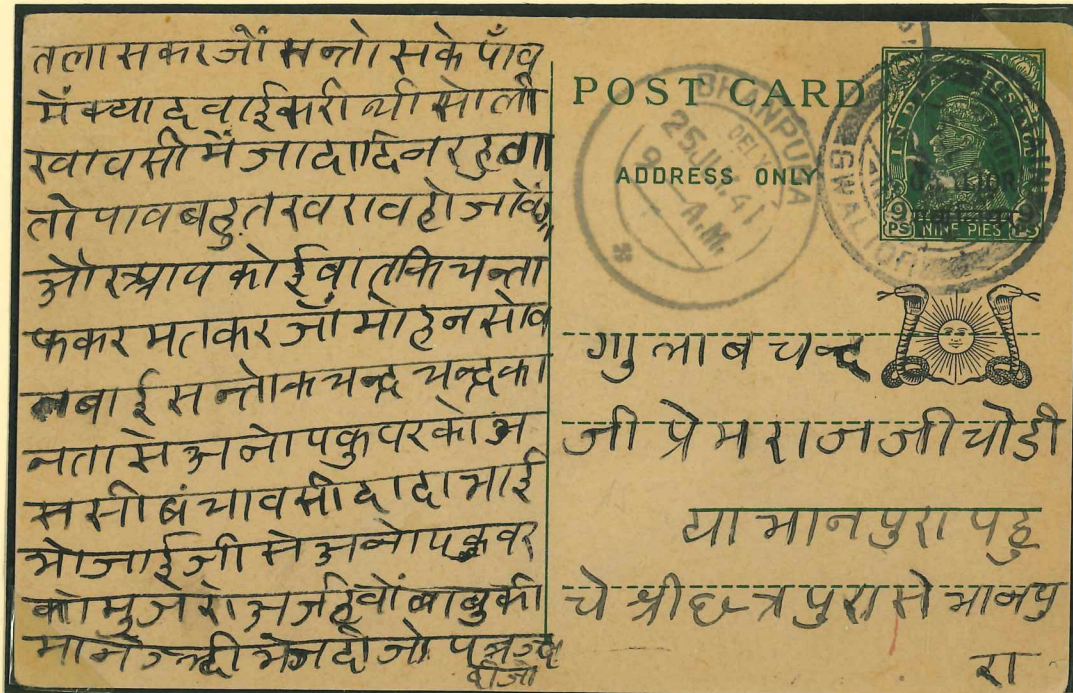 तलासकरजों सन्तोसके पाँव
में क्या दवाई करी थी सोली
खावसी में जादा दिन रहुगा
तो पाव बहुत खराब हो जावेंगा
और आप कोई बात कि चन्ता
फकर मत करजों मोहन सोव
नबाई सन्तोकचन्द्र चन्द्रका
न्तासे अनोपकुवरको अ
ससी बंचावसी दादाभाई
भोजाईजी से अनोपकुवर
को मुजरो अर्ज हवों बाबुकी
POST CARD
ADDRESS ONLY
BHANPURA
DELY
25 JU 41
9 A.M.
9 PS NINE PIES 9 PS
गुलाबचन्द
जी प्रेमराजजी चोडी
या भानपुरा पहु
चे श्री छत्रपुरा से भानपु
रा